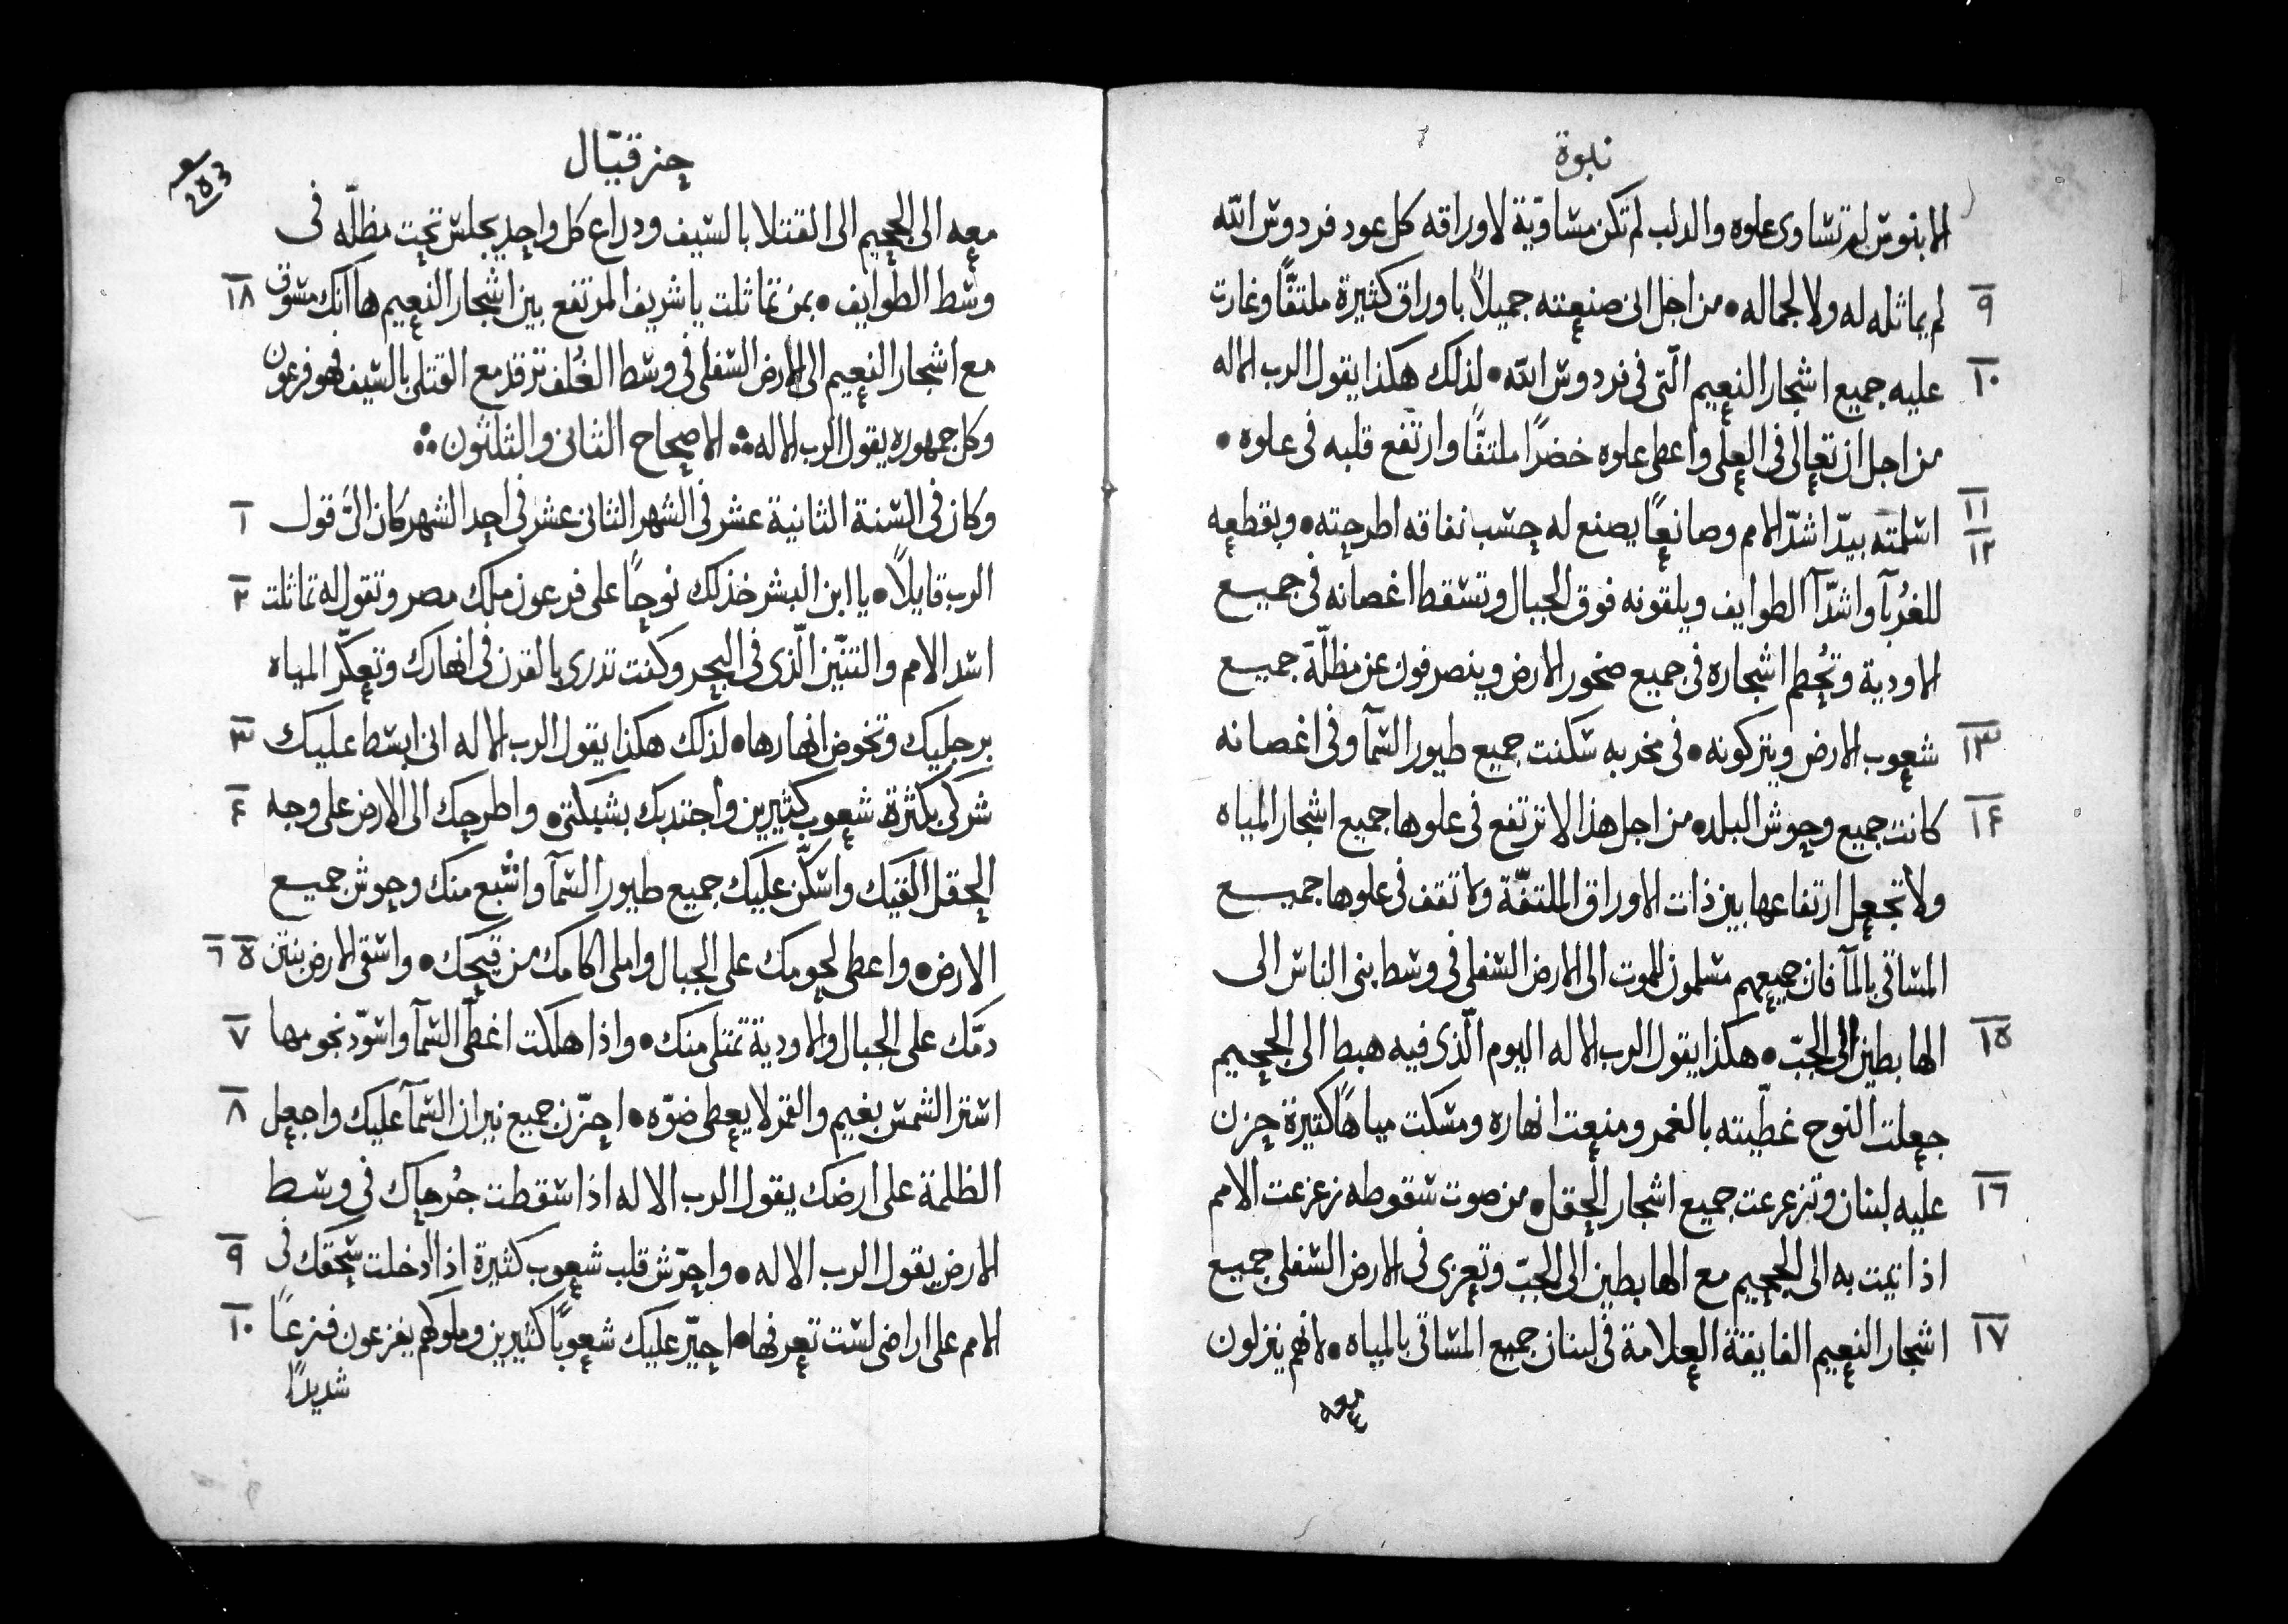 نبوة
الابنوس لم تساوى علوه والدلب لم تكن مساويّة لاوراقه كل عود فردوس الله
٩ لم يماثله له ولا لجماله • من اجل انى صنعته جميلاً باوراق كثيرة ملتفًّا وغارت
١٠ عليه جميع اشجار النعيم الّتى فى فردوس الله • لذلك هكذا يقول الرب الاله
من اجل ان تعالى فى العلى واعطى علوه خضرًا ملتفًّا وارتفع قلبه فى علوه •
١١ ١٢ اسلمته بيدّ اشدّ الامم وصانعًا يصنع له حسب نفاقه اطرحته • ويقطعه
للغُربآ واشدّآ الطوايف ويلقونه فوق الجبال وتسقط اغصانه فى جميع
الاودية وتُحطم اشجاره فى جميع صخور الارض وينصرفون عن مظلّة جميع
١٣ شعوب الارض ويتركونه • فى مخربه سكنت جميع طيور السمآ وفى اغصانه
١٤ كانت جميع وحوش البلده من اجل هذا لا ترتفع فى علوها جميع اشجار المياه
ولا تجعل ارتفاعها بين ذات الاوراق الملتفّة ولا تقف فى علوها جميع
المساقى بالمآ فان جميعهم مسلمون للموت الى الارض السفلى فى وسط بنى الناس الى
١٥ الهابطين الى الجبّ • هكذا يقول الرب الاله اليوم الّذى فيه هبط الى الجحيم
جعلت النوح غطّيته بالغمر ومنعت انهاره ومسكت مياهًا كثيرة حزن
١٦ عليه لبنان وتزعزعت جميع اشجار الحقل • من صوت سقوطه زعزعت الامم
اذا نمت به الى الجحيم مع الهابطين الى الجبّ وتعزى فى الارض السفلى جميع
١٧ اشجار النعيم الفايقة العلامة فى لبنان جميع المساقى بالمياه • لانهم ينزلون
معه
حزقيّال
203
معه الى الجحيم الى القتلا بالسيف ودراع كل واحد يجلس تحت مظلّه فى
١٨ وسط الطوايف • بمن تماثلت يا شريف المرتفع بين اشجار النعيم ها انك مسوق
مع اشجار النعيم الى الارض السفلى فى وسط الغُلف ترقد مع القتلى بالسيف فهو فرعون
وكل جمهوره يقول الرب الاله ܀ الاصحاح الثانى والثلثون ܀
١ وكان فى السنة الثانية عشر فى الشهر الثانى عشر فى احد الشهر كان الىّ قول
٢ الرب قايلاً • يا ابن البشر خذ لك نوحًا على فرعون ملك مصر وتقول له تماثلت
اسد الامم والتنّين الّذى فى البحر وكنت تذرى بالقرن فى انهارك وتعكّر المياه
٣ برجليك وتخوض انهارها • لذلك هكذا يقول الرب الاله انى ابسط عليك
٤ شركى بكثرة شعوب كثيرين واجتدبك بشبكتى • واطرحك الى الارض على وجه
الحقل القيك واسكّن عليك جميع طيور السمآ واشبع منك وحوش جميع
٥ ٦ الارض • واعطى لحومك على الجبال واملى اكامك من قيحك • واسقى الارض بنتن
٧ دمّك على الجبال والاودية تمتلى منك • واذا هلكت اغطّى السمآ واسوّد نجومها
٨ استر الشمس بغيم والقمر لا يعطى ضوّه • احزّن جميع نيران السمآ عليك واجعل
الظلمة على ارضك يقول الرب الاله اذا سقطت جُرحاك فى وسط
٩ الارض يقول الرب الاله • واحرّش قلب شعوب كثيرة اذا ادخلت سحقك فى
١٠ الامم على اراضى لست تعرفها • احيّر عليك شعوبًا كثيرين وملوكهم يفزعون فزعًا
شديدًا